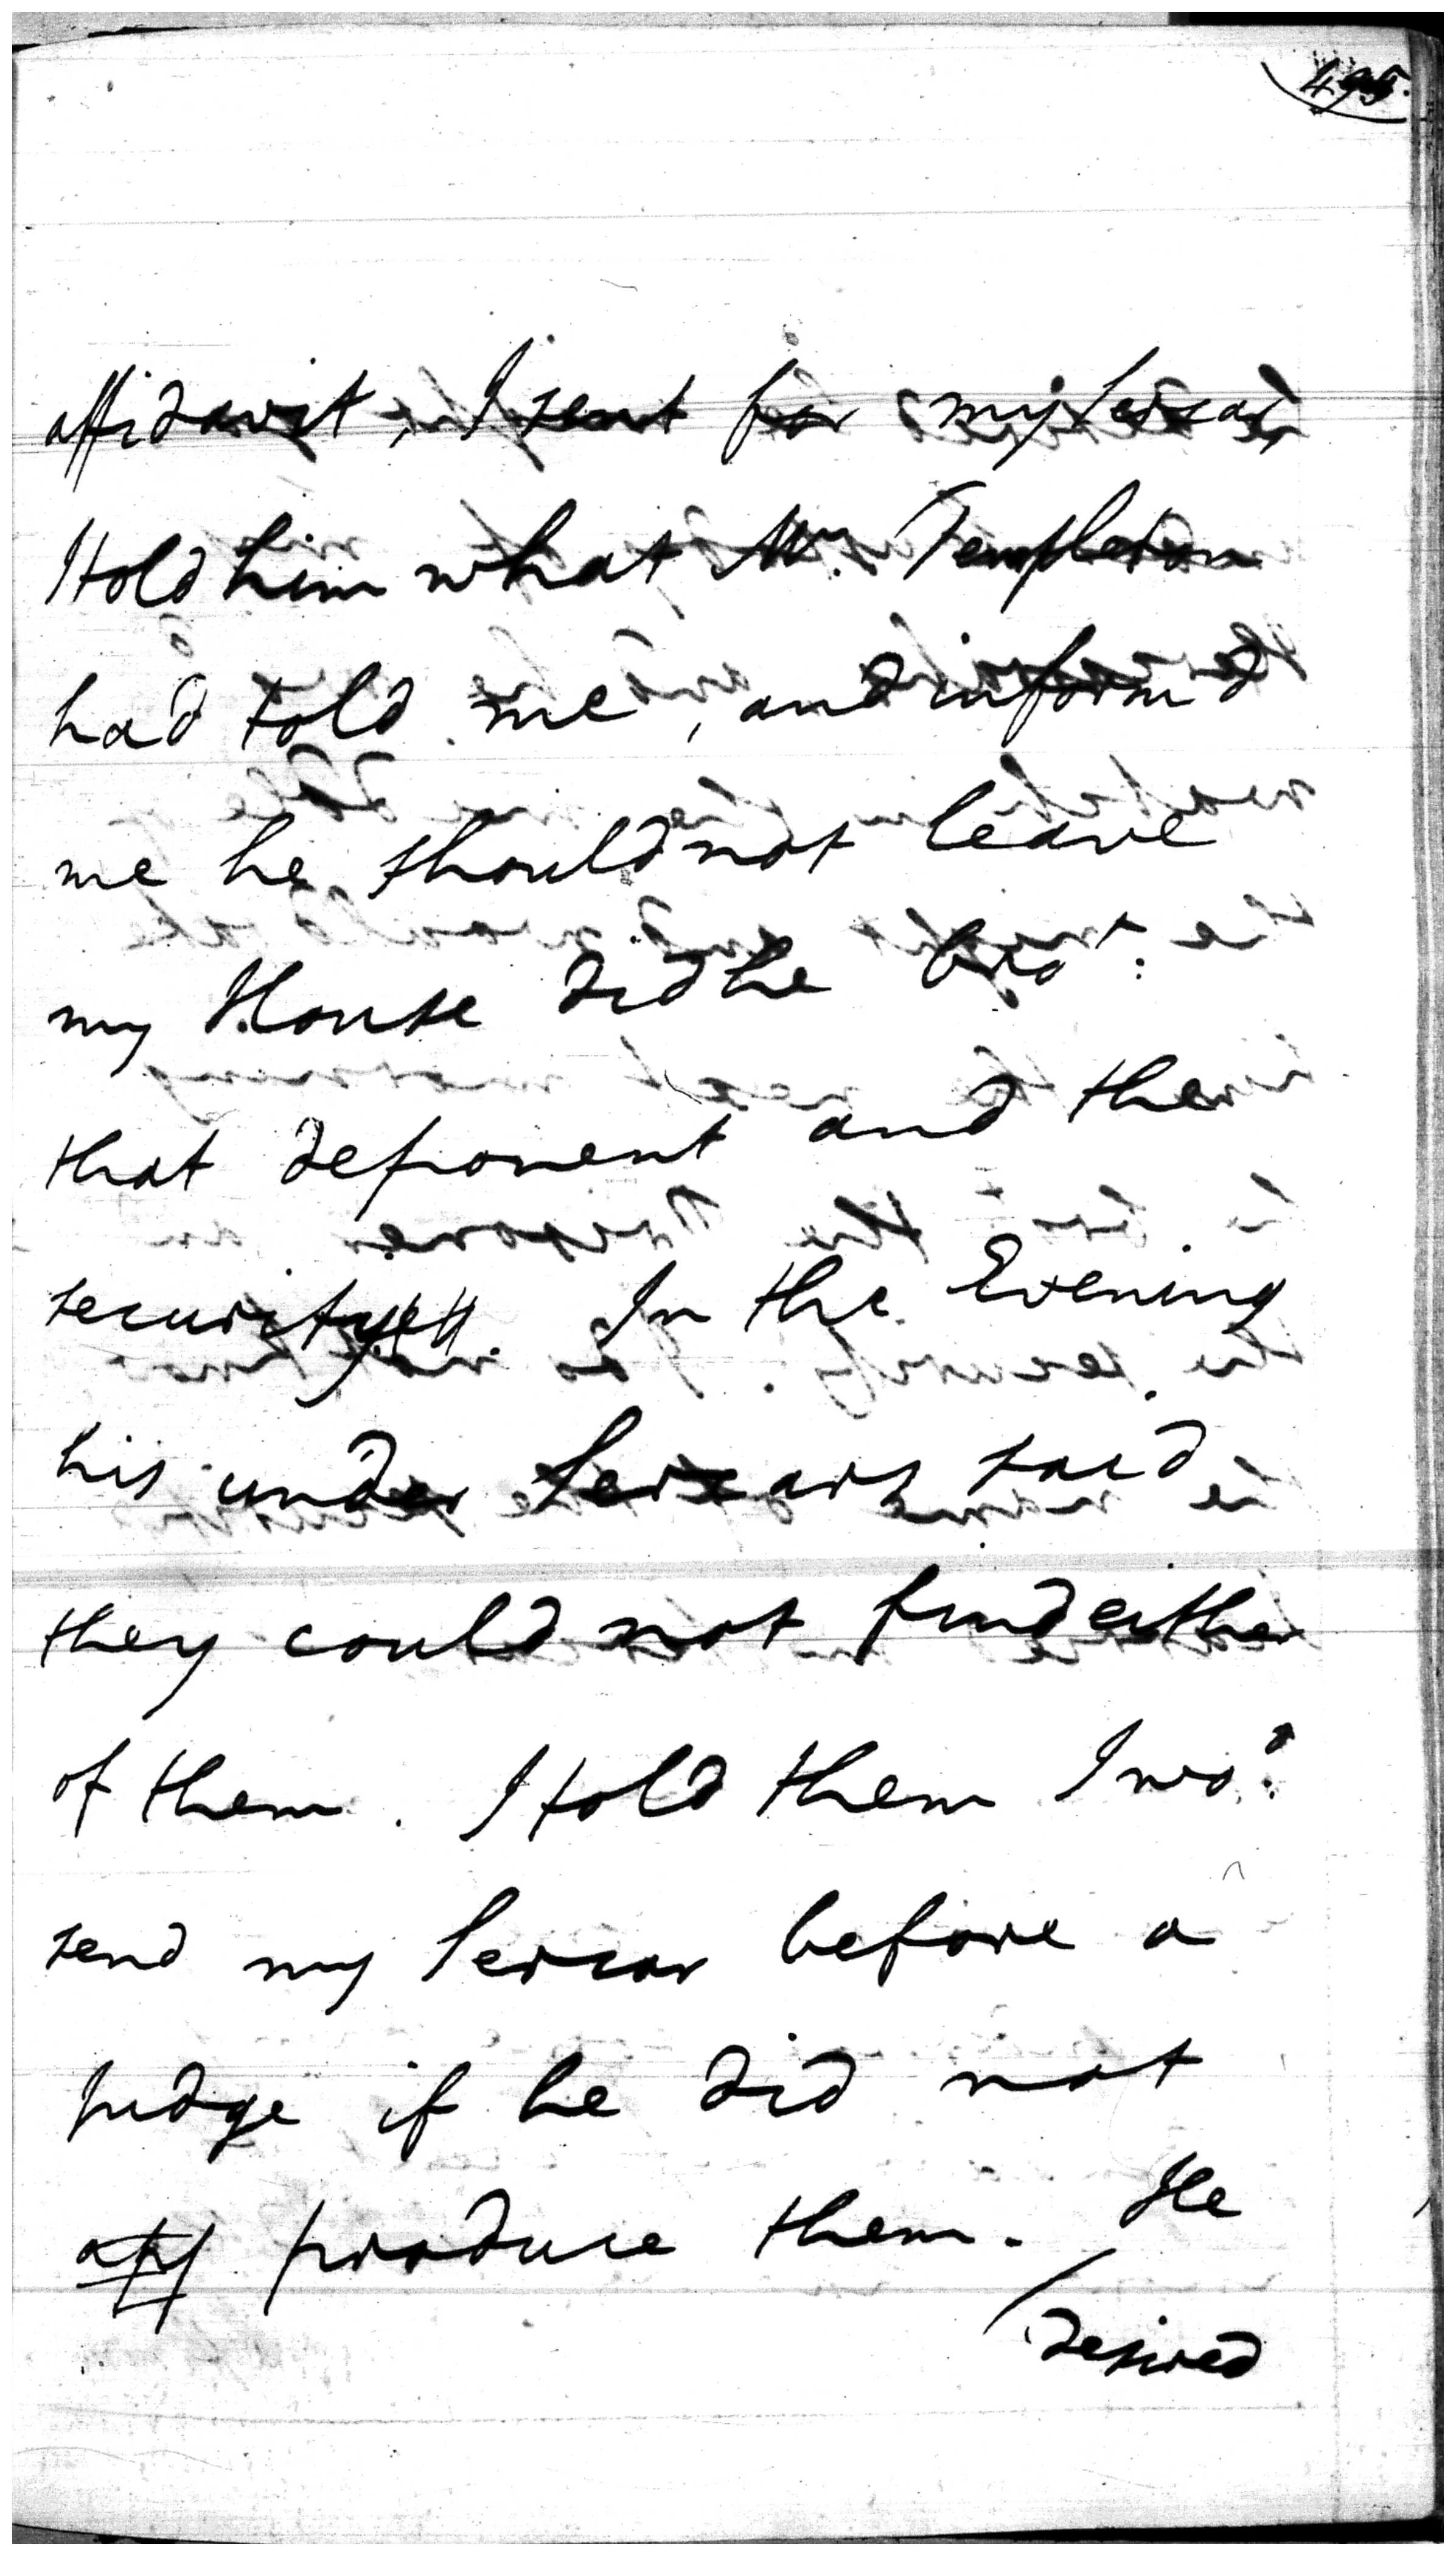 495.
affidavit, I sent for my Sercar
I told him what Mr. Templeton
had told me, and inform'd
me he should not leave
my House did he bro.t:
that deponent and the
security. In the Evening
his under Sercars said
they could not find either
of them. I told them I wo.d:
send my Sercar before a
Judge if he did not
produce them. He
desired